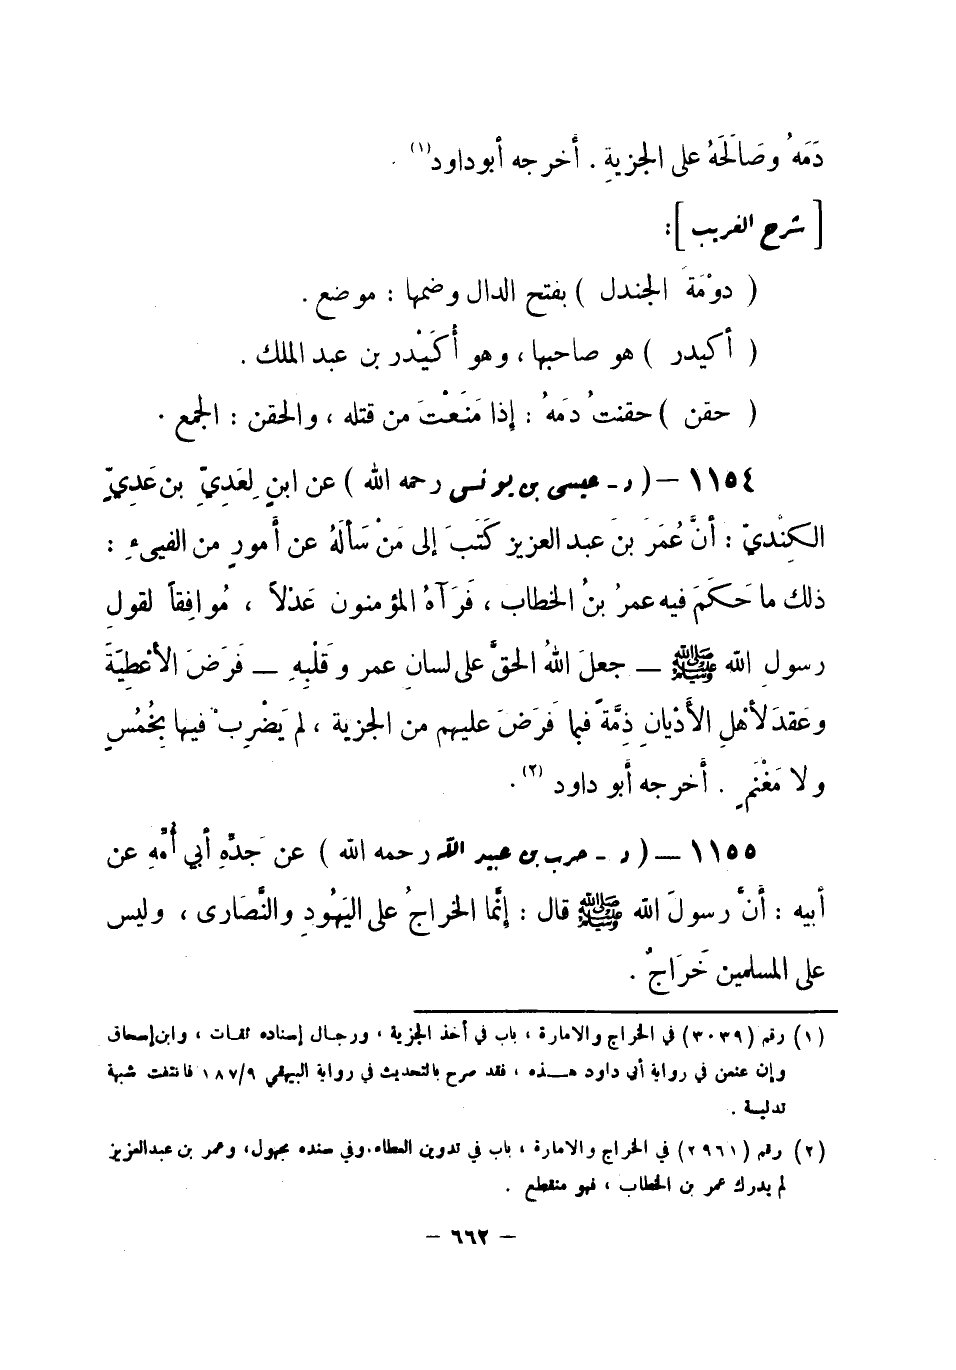 دَمَهُ وصَالَحَهُ على الجزيةِ . أخرجه أبو داود (١) .
[ شرح الغريب ] :
( دوْمَةَ الجندل ) بفتح الدال وضمها : موضع .
( أكيدر ) هو صاحبها ، وهو أُكَيْدر بن عبد الملك .
( حقن ) حقنتُ دمَهُ : إذا مَنَعْتَ من قتله ، والحقن : الجمع .
١١٥٤ – ( د - عيسى بن يونس رحمه الله ) عن ابنٍ لِعَدِيِّ بن عَدِيٍّ
الكِنْديّ : أنَّ عُمَرَ بنَ عبد العزيز كَتَبَ إلى مَنْ سَألَهُ عن أمورٍ من الفيىءِ :
ذلك ما حَكَمَ فيه عمرُ بنُ الخطاب ، فَرَآهُ المؤمنون عَدْلاً ، مُوافِقاً لقولِ
رسولِ الله ﷺ — جعلَ اللهُ الحقَّ على لسانِ عمر وقَلْبِهِ — فَرَضَ الأعْطِيَةَ
وعَقدَ لأهْلِ الأدْيانِ ذِمَّةً فيما فَرَضَ عليهم من الجزية ، لم يَضْرِبْ فيها بِخُمُسٍ
ولا مَغْنَمٍ . أخرجه أبو داود (٢) .
١١٥٥ – ( د - حرب بن عبيد الله رحمه الله ) عن جَدِّهِ أبي أُمِّهِ عن
أبيه : أنَّ رسولَ الله ﷺ قال : إنَّما الخراجُ على اليَهُودِ والنَّصَارى ، وليس
على المسلمين خَرَاجٌ .
(١) رقم (٣٠٣٩) في الخراج والامارة ، باب في أخذ الجزية ، ورجال إسناده ثقات ، وابن إسحاق
وإن عنعن في رواية أبي داود هذه ، فقد صرح بالتحديث في رواية البيهقي ١٨٧/٩ فانتفت شبهة
تدليسه .
(٢) رقم (٢٩٦١) في الخراج والامارة ، باب في تدوين العطاء . وفي سنده مجهول ، وعمر بن عبدالعزيز
لم يدرك عمر بن الخطاب ، فهو منقطع .
– ٦٦٢ –